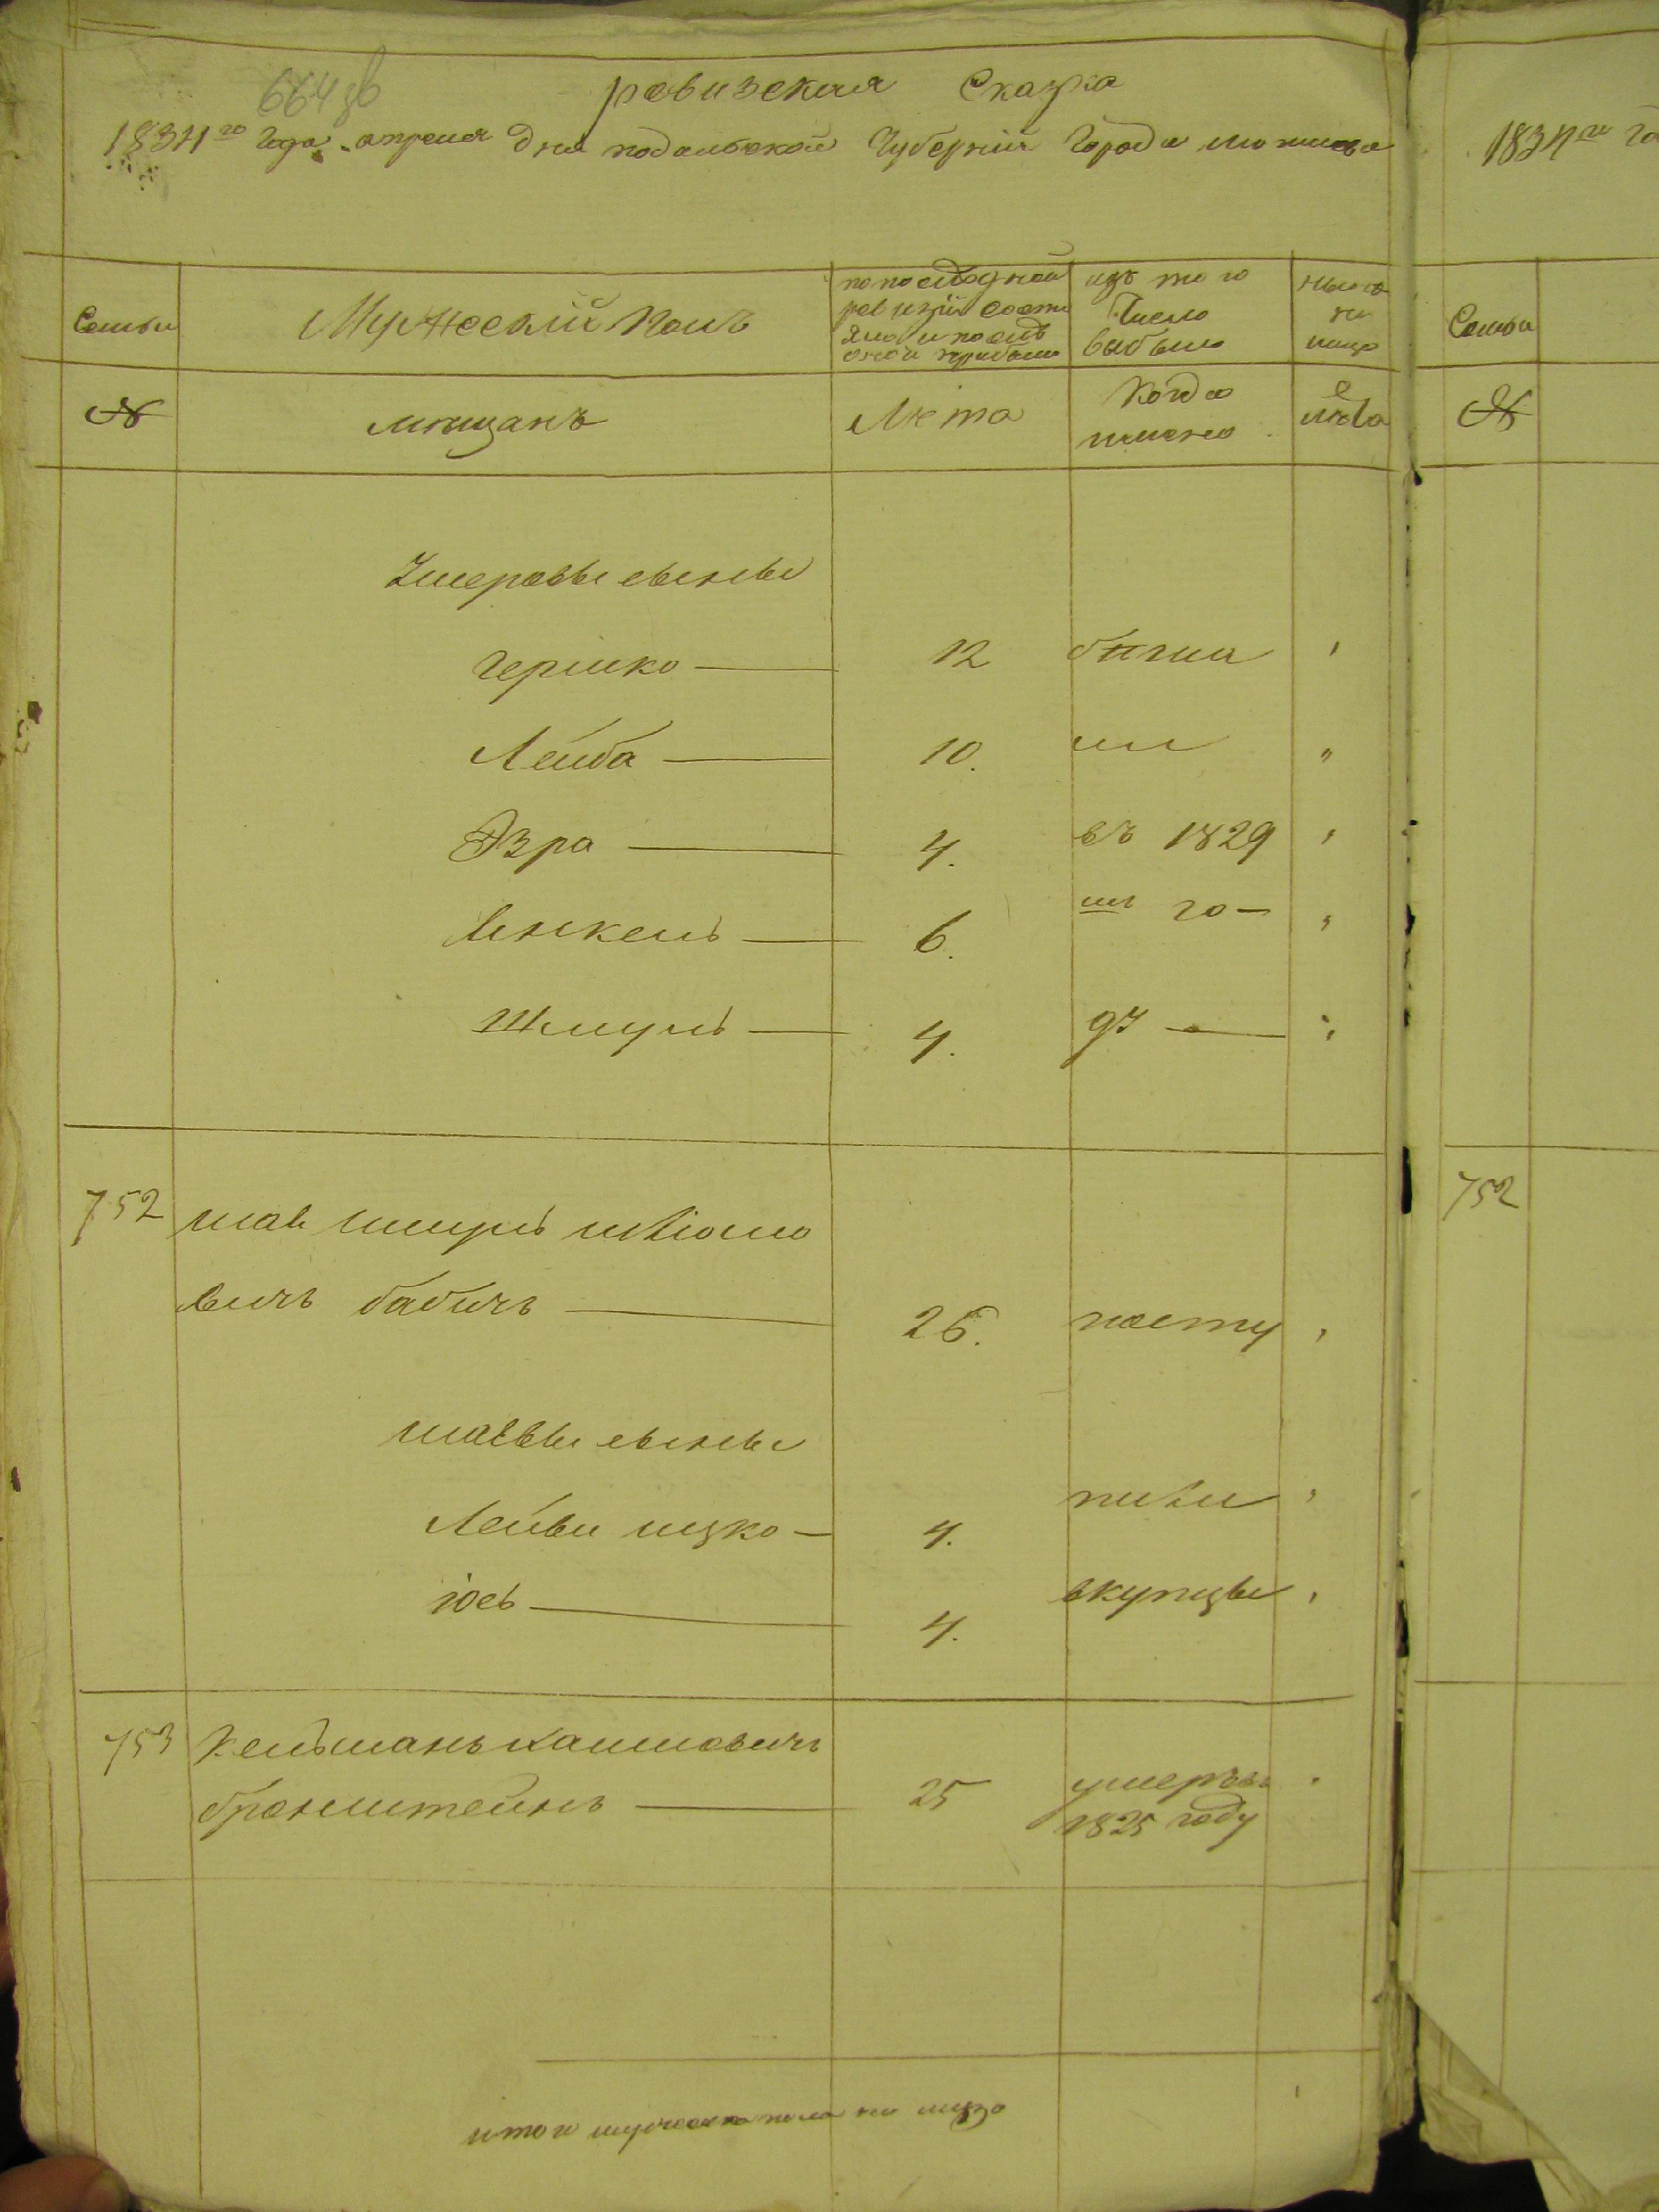 664 зв
ревизская Сказка
1834го Года апреля Дня подольской Губернии Города могилева
1834го Го
Семьи
Мужеский Полъ
по последней ревизии состояло и после оной прибыло
изъ того Число выбыло
ныне на лицо
Семьи
№
мещанъ
Лета
Когда имено
лета
№
Умеровы сыновы
Гершко — 12 бежа
Лейба — 10. ли
Эзра — 4. въ 1829
Янкель — 6. мъ го—
Шмуль — 4. ду —
752 752
шае Шмуль
вичъ бабичъ — 26. посту
шаевы сыновы
пили
Лейви ицко — 4.
іось — 4. вкупцы
753 Кельманъ Хаимовичъ
бронштейнъ — 25 умеръ въ
1825 году
итого мужеска пола на лицо